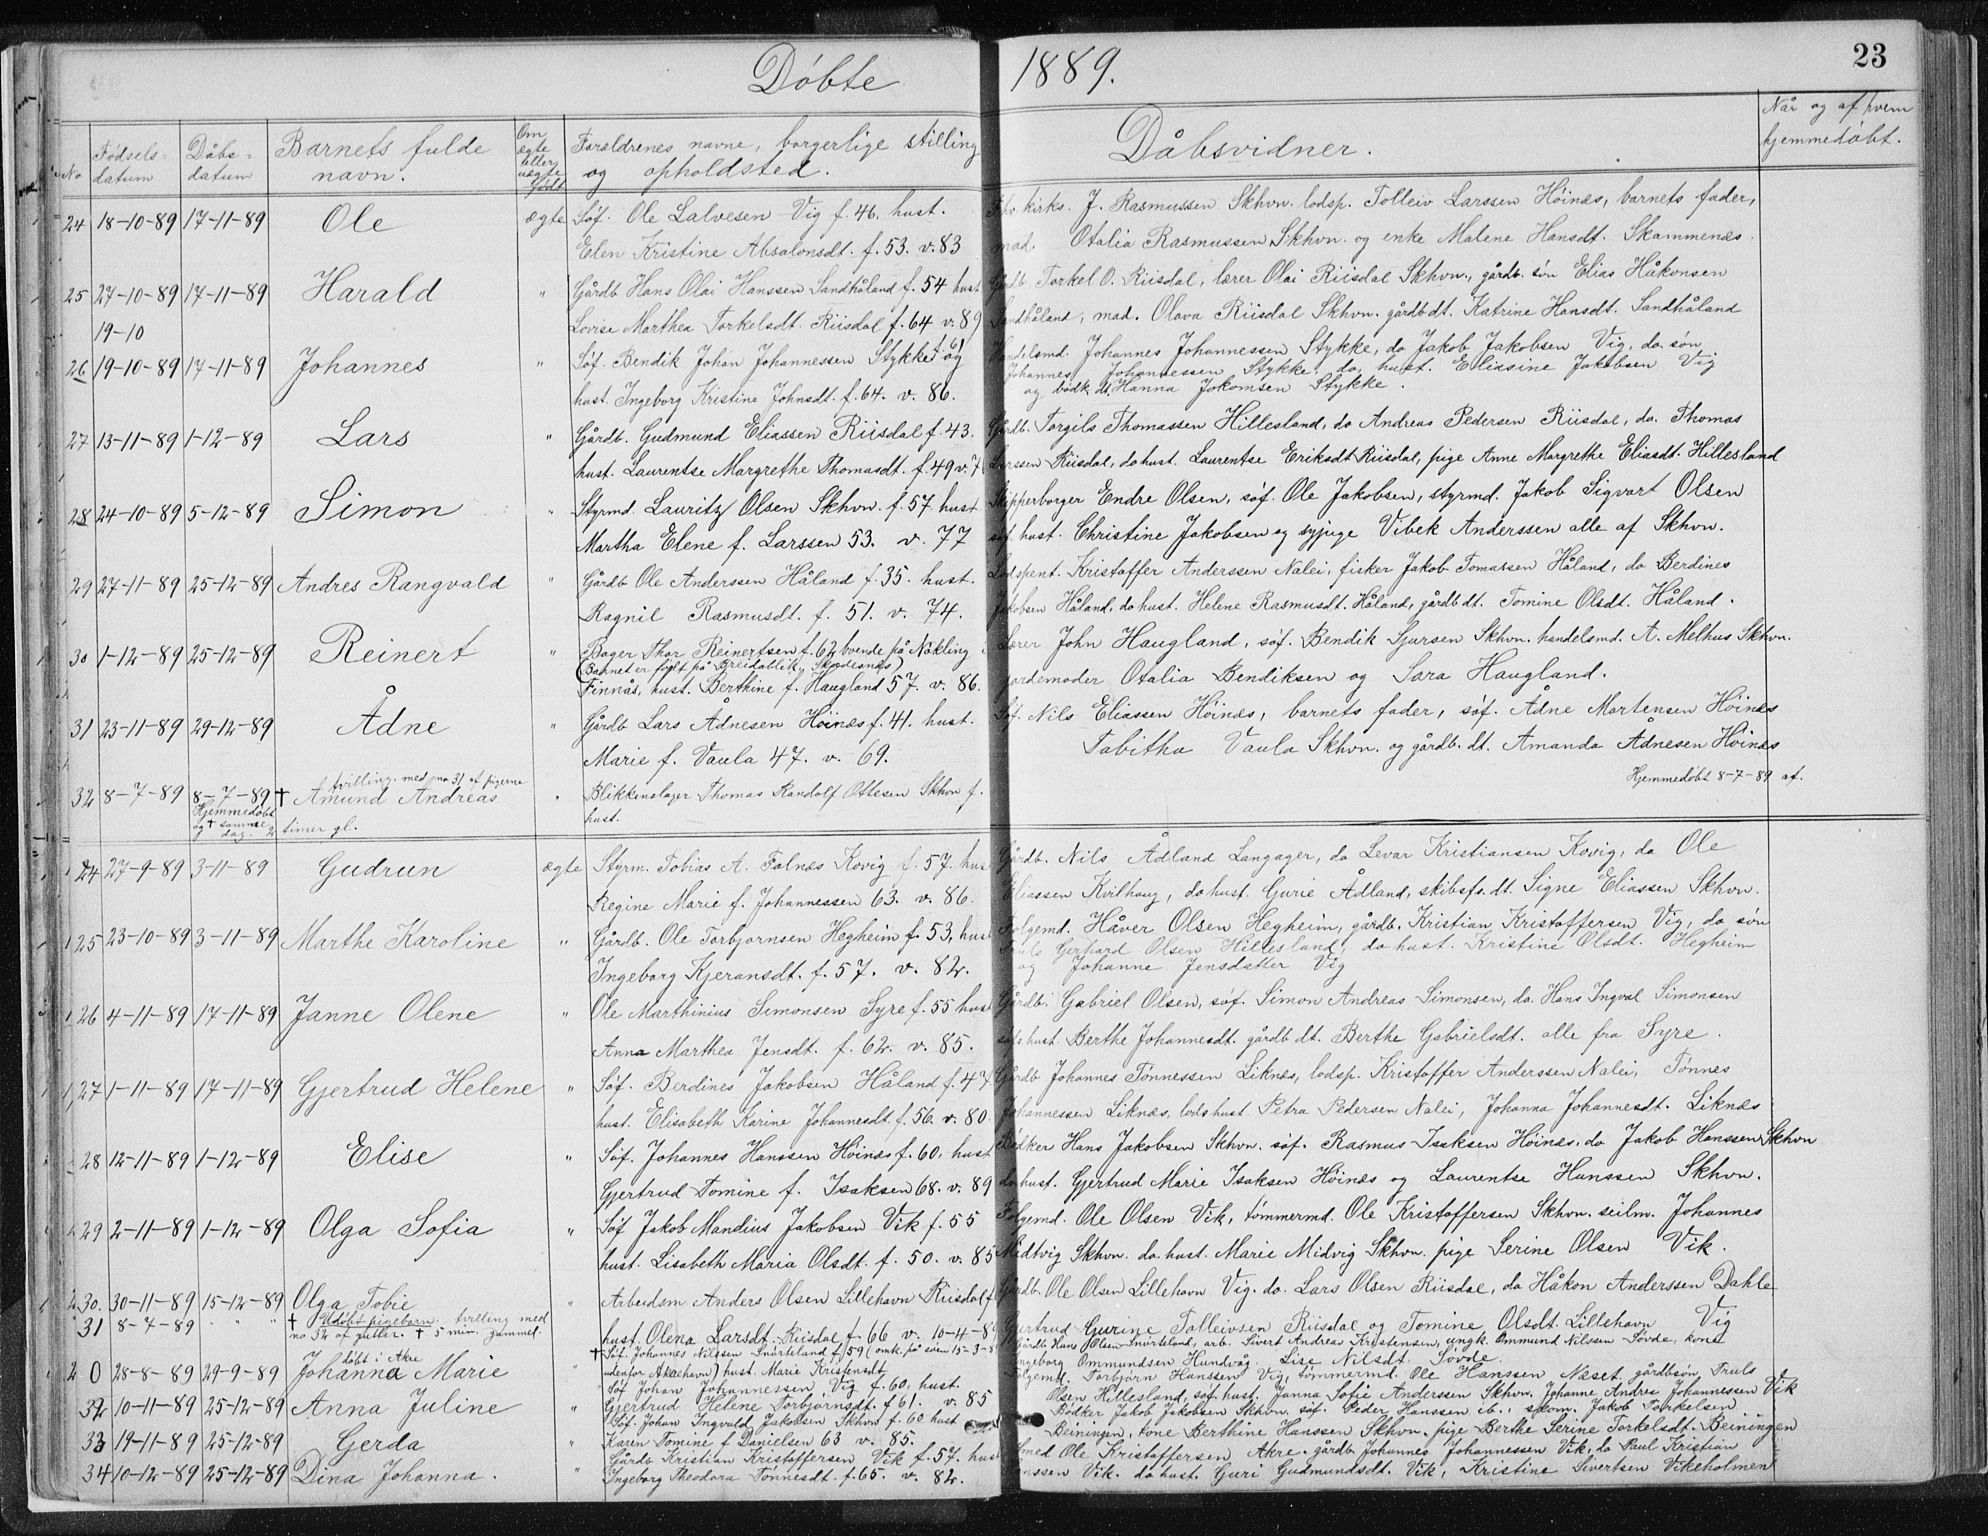 Döbte 1889.
23
No
Födsels-datum
Dåbs-datum
Barnets fulde navn.
Om ægte eller uægte födt
Forældrenes navne, borgerlige stilling og opholdsted.
Dåbsvidner.
Når og af hvem hjemmedöbt.
24 18-10-89 17-11-89 Ole ægte Söf. Ole Lalvesen Vig f. 46. hust. kirks. J. Rasmussen Skhvn. lodsp. Tolleiv Larssen Höinæs, barnets fader,
Elen Kristine Absalonsdt. f. 53. v. 83 mad. Otalia Rasmussen Skhvn. og enke Malene Hansdt. Skammenæs.
25 27-10-89 17-11-89 Harald " Gårdb Hans Olai Hanssen Sandhåland f. 54 hust Gårdb Torkel O. Riisdal, lærer Olai Riisdal Skhvn., gårdb. sön Elias Håkonsen
19-10 Lovise Marthea Torkelsdt. Riisdal f. 64 v. 89 Sandhåland, mad. Olava Riisdal Skhvn. gårdbdt. Katrine Hansdt. Sandhåland
26 19-10-89 17-11-89 Johannes " Söf. Bendik Johan Johannessen Stykke f 61 og Handelsmd. Johannes Johannessen Stykke, do Jakob Jakobsen Vig, do. sön
Johannes Johannessen Stykke, do. hust. Eliasine Jakobsen Vig
hust. Ingeborg Kristine Johnsdt. f. 64. v. 86. og bödk. dt. Hanna Jokomsen Stykke.
27 13-11-89 1-12-89 Lars " Gårdb. Gudmund Eliassen Riisdal f. 43. Gårdb. Torgils Thomassen Hillesland, do Andreas Pedersen Riisdal, do. Thomas
hust. Laurentse Margrethe Thomasdt. f. 49 v. 7 Larssen Riisdal, do hust. Laurentse Eriksdt Riisdal, pige Anne Margrethe Eliasdt. Hillesland
28 24-10-89 5-12-89 Simon " Styrmd. Lauritz Olsen Skhvn. f. 57. hust Skipperborger Endre Olsen, söf. Ole Jakobsen, styrmd. Jakob Sigvart Olsen
Martha Elene f. Larssen 53. v. 77 söf. hust. Christine Jakobsen og sypige Vibek Anderssen alle af Skhvn.
29 27-11-89 25-12-89 Andres Rangvald " Gårdb Ole Anderssen Håland f. 35. hust. Lodspent. Kristoffer Anderssen Nalei, fisker Jakob Tomassen Håland, do Berdines
Ragnil Rasmusdt. f. 51. v. 74. Jakobsen Håland, do hust. Helene Rasmusdt. Håland, gårdb dt. Tomine Olsdt. Håland.
30 1-12-89 25-12-89 Reinert " Bager Thor Reinertsen f. 62 boende på Nökling i Lærer John Haugland, söf. Bendik Sjursen Skhvn. handelsmd. A. Melhus Skhvn.
(Barnet er födt på Breidablik, Skudesnæs)
Finnås, hust. Berthine f. Haugland 57. v. 86. jordemoder Otalia Bendiksen og Sara Haugland.
31 23-11-89 29-12-89 Ådne " Gårdb Lars Ådnesen Höinæs f. 41. hust. Söf. Nils Eliassen Höinæs, barnets fader, söf. Ådne Mortensen Höinæs
Marie f. Vaula 47. v. 69. Tabitha Vaula Skhvn. og gårdb. dt. Amanda Ådnesen Höinæs
tvilling med no 31 af pigerne Hjemmedöbt 8-7-89 af.
32 8-7-89 8-7-89 † Amund Andreas " Blikkenslager Thomas Randolf Ottesen Skhvn f.
Hjemmedöbt og † samme dag. 2 timer gl. hust.
24 27-9-89 3-11-89 Gudrun ægte Styrm. Tobias A. Falnæs Kovig f. 57. hus Gårdb. Nils Ådland Langager, do Levar Kristiansen Kovig, do Ole
Regine Marie f. Johannessen 63. v. 86. Eliassen Kvilhaug, do hust. Gurie Ådland, skibsfs. dt. Signe Eliassen Skhvn.
25 23-10-89 3-11-89 Marthe Karoline " Gårdb. Ole Torbjörnsen Hegheim f. 53, hust Folgemd. Håver Olsen Hegheim, gårdb. Kristian Kristoffersen Vig, do sön
Truls Gerhard Olsen Hillesland, do hust. Kristine Olsdt. Hegheim
Ingeborg Kjeransdt. f. 57. v. 82. og Johanne Jensdatter Vig
26 4-11-89 17-11-89 Janne Olene " Ole Marthinius Simonsen Syre f. 55 hust Gårdb. Gabriel Olsen, söf. Simon Andreas Simonsen, do. Hans Ingval Simonsen
Anna Marthea Jensdt. f. 62. v. 85. söfs hust. Berthe Johannesdt. gårdb dt. Berthe Gabrielsdt. alle fra Syre.
27 1-11-89 17-11-89 Gjertrud Helene " Söf. Berdines Jakobsen Håland f. 47. Gårdb Johannes Tönnessen Liknæs, lodsp. Kristoffer Anderssen Nalei, Tönnes
hust. Elisabeth Karine Johannesdt. f. 56. v. 80. Johannessen Liknæs, lods hust. Petra Pedersen Nalei, Johanna Johannesdt. Liknæs
28 12-11-89 1-12-89 Elise " Söf. Johannes Hanssen Höinæs f. 60, hust Bödker Hans Jakobsen Skhvn. söf. Rasmus Isaksen Höinæs, do Jakob Hanssen Skhvn
Gjertrud Tomine f. Isaksen 68. v. 89 do hust. Gjertrud Marie Isaksen Höinæs og Laurentse Hanssen Skhvn.
29 2-11-89 1-12-89 Olga Sofia " Söf Jakob Mandius Jakobsen Vik f. 55 Folgemd. Ole Olsen Vik, tömmermd. Ole Kristoffersen Skhvn. seilm. Johannes
hust. Lisabeth Maria Olsdt. f. 50. v. 85 Midtvig Skhvn. do hust. Marie Midvig Skhvn. pige Serine Olsen Vik.
30. 30-11-89 15-12-89 Olga Tobie " Arbeidsm. Anders Olsen Lillehavn Riisdal f. Gårdb. Ole Olsen Lillehavn Vig. do. Lars Olsen Riisdal, do Håkon Anderssen Dahle
31 8-7-89 " " " † Udöbt pigebarn. tvilling med no 32 af gutter. † 5 min. gammel. hust. Olena Larsdt. Riisdal f. 66 v. 10-4-89 Gjertrud Gurine Tolleivsen Riisdal og Tomine Olsdt. Lillehavn Vig
0 28-8-89 29-9-89 döbt i Akre Johanna Marie " † Söf. Johannes Nilssen Snörteland f 59 (omk. på söen 15-3-89 Gårdb Hans Olsen Snörteland, arb. Sivert Andreas Kristensen, ungk. Ommund Nilssen Sövde, kone
udenfor Akrehavn) hust. Marie Kristensdt. Ingeborg Ommundsen Hundvåg Lise Nilsdt. Sövde.
32 10-11-89 25-12-89 Anna Juline " Söf Johan Johannessen Vig f. 60, hust. Folgemd. Torbjörn Hanssen Vig, tömmermd. Ole Hansen Næset, gårdbsön Truls
Gjertrud Helene Torbjörnsdt. f 61. v. 85 Olsen Hillesland, söf. hust. Janna Sofie Anderssen Skhvn. Johanne Andrea Johannessen Vik
33 19-11-89 25-12-89 Gerda " Söf. Johan Ingvald Jakobsen Skhvn f. 60 hust Bödker Jakob Jakobsen Skhvn. söf. Peder Hanssen ib., skom. Jakob Torkelsen
Karen Tomine f Danielsen 63 v. 85. Beiningen, kone Berthine Hanssen Skhvn. pige Berthe Serine Torkelsdt. Beiningen
34 10-12-89 25-12-89 Dina Johanna. " Gårdb Kristian Kristoffersen Vik f. 57. hust Smed Ole Kristoffersen Akre. gårdb Johannes Johannessen Vik, do Paul Kristian
Ingeborg Theodora Tönnesdt. f. 65. v. 82. Hanssen Vik. do hust. Guri Gudmundsdt. Vik, Kristine Sivertsen Vikeholmen